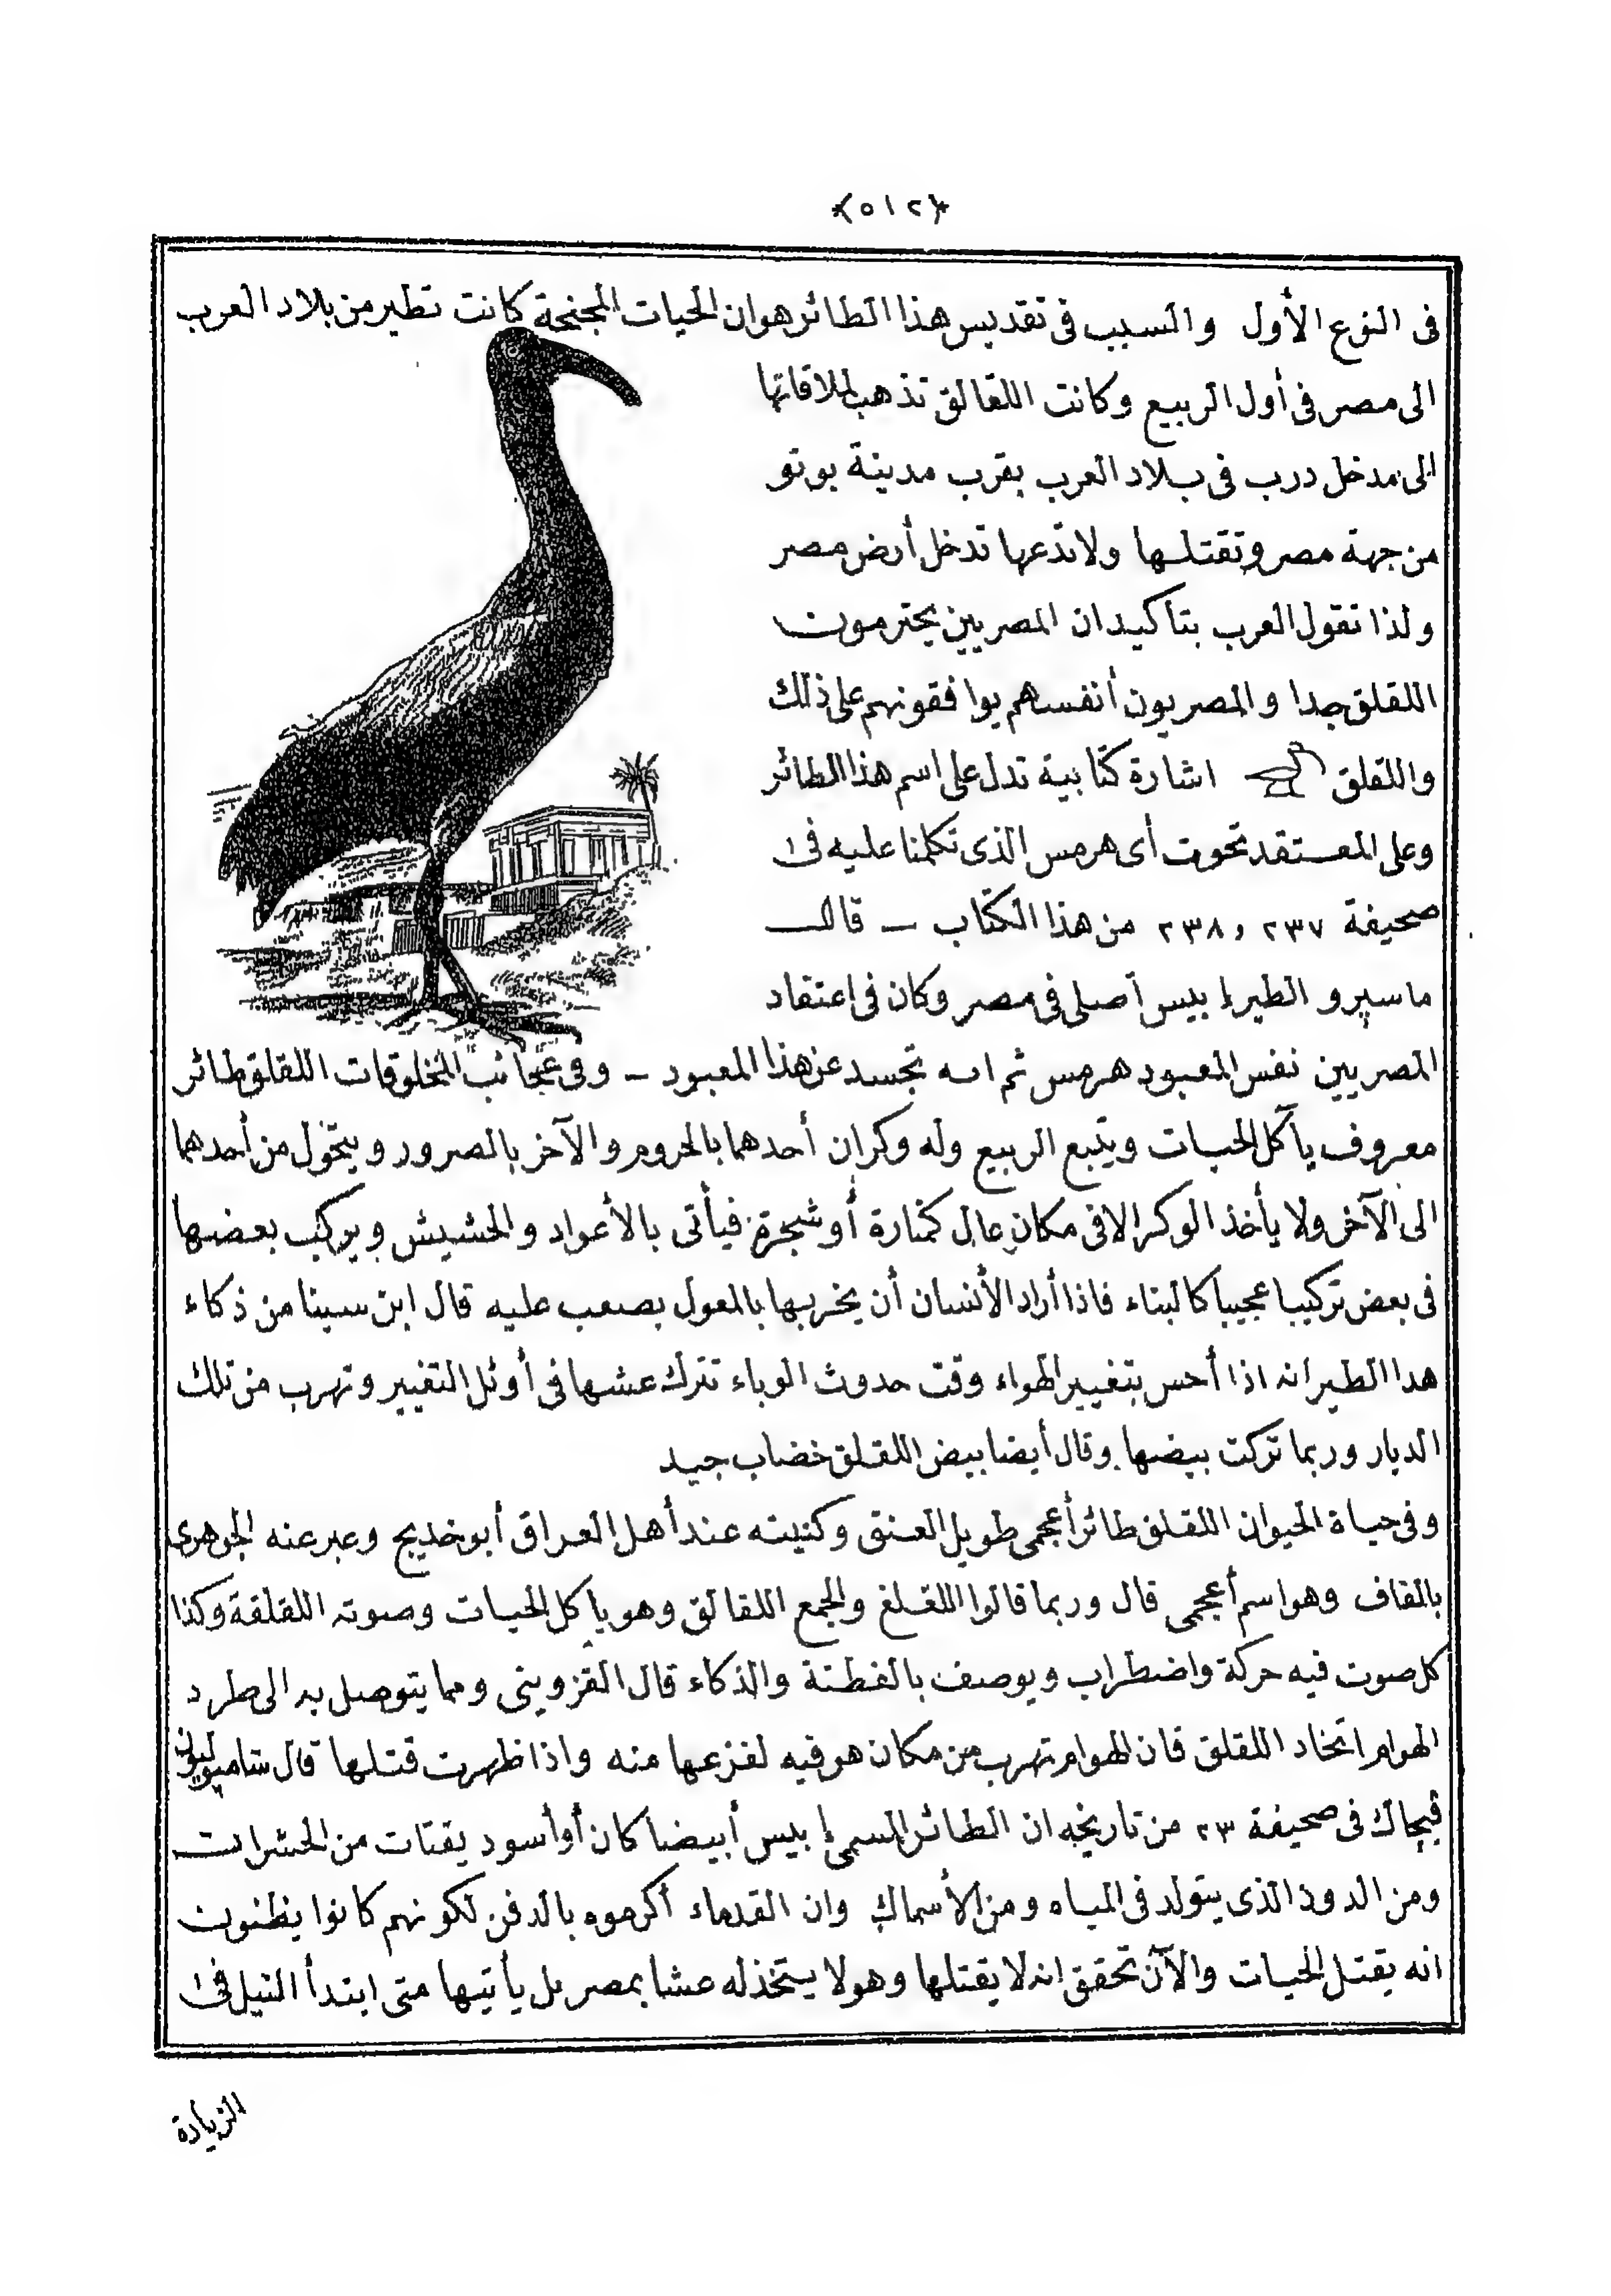 ﴿٥١٢﴾
فى النوع الأول والسبب فى تقديس هذا الطائر هو ان الحيات المجنحة كانت تطير من بلاد العرب
الى مصر فى أول الربيع وكانت اللقالق تذهب لملاقاتها
الى مدخل درب فى بلاد العرب بقرب مدينة بوتو
من جهة مصر وتقتلها ولا تدعها تدخل أرض مصر
ولذا تقول العرب بتأكيد ان المصريين يحترمون
اللقلق جدا والمصريون أنفسهم يوافقونهم على ذلك
واللقلق اشارة كتابية تدل على اسم هذا الطائر
وعلى المعتقد تحوت أى هرمس الذى تكلمنا عليه فى
صحيفة ٢٣٧ و ٢٣٨ من هذا الكتاب – قال
ماسپرو الطير إبيس أصلى فى مصر وكان فى إعتقاد
المصريين نفس المعبود هرمس ثم انه تجسد عن هذا المعبود – وفى عجائب المخلوقات اللقلق طائر
معروف يأكل الحيات ويتبع الربيع وله وكران أحدهما بالحروم والآخر بالصرور ويتحول من أحدهما
الى الآخر ولا يأخذ الوكر الا فى مكان عال كمنارة أو شجرة فيأتى بالأعواد والحشيش ويركب بعضها
فى بعض تركيبا عجيبا كالبناء فاذا أراد الأنسان أن يخربها بالمعول يصعب عليه قال ابن سينا من ذكاء
هدا الطير انه اذا أحس بتغيير الهواء وقت حدوث الوباء تترك عشها فى أوئل التغيير وتهرب من تلك
الديار وربما تركت بيضها وقال أيضا بيض اللقلق خضاب جيد
وفى حياة الحيوان اللقلق طائر أعجمى طويل العنق وكنيته عند أهل العراق أبو خديج وعبر عنه الجوهرى
بالقاف وهو اسم أعجمى قال وربما قالوا اللقلغ والجمع اللقالق وهو يأكل الحيات وصوته اللقلقة وكذا
كل صوت فيه حركة واضطراب ويوصف بالفطنة والذكاء قال القزوينى ومما يتوصل به الى طرد
الهوام اتخاد اللقلق فان الهوام تهرب من مكان هو فيه لفزعها منه واذا ظهرت قتلها قال شامپوليون
فيجاك فى صحيفة ٢٣ من تاريخه ان الطائر المسمى إبيس أبيضا كان أو أسود يقتات من الحشرات
ومن الدود الذى يتولد فى المياه ومن الأسماك وان القدماء أكرموه بالدفن لكونهم كانوا يظنون
انه يقتل الحيات والآن تحقق انه لا يقتلها وهو لا يستخذ له عشا بمصر بل يأتيها متى ابتدأ النيل فى
الزيادة